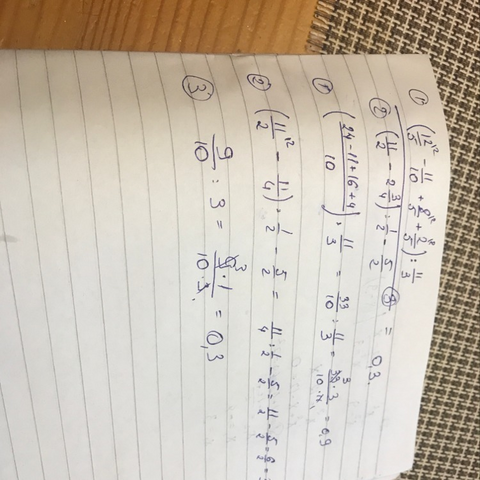 ① (12/5 - 11/10 + 8/5 + 2/5) : 11/3
② (11/2 - 2 3/4) : 1/2 - 5/2 ③ = 0,3.
① (24 - 11 + 16 + 4 / 10) : 11/3 = 33/10 : 11/3 = 33 · 3 / 10 · 11 = 0,9
② (11/2 - 11/4) : 1/2 - 5/2 = 11/4 : 1/2 - 5/2 = 11/2 - 5/2 = 6/2 =
③ 9/10 : 3 = 9 · 1 / 10 · 3 = 0,3